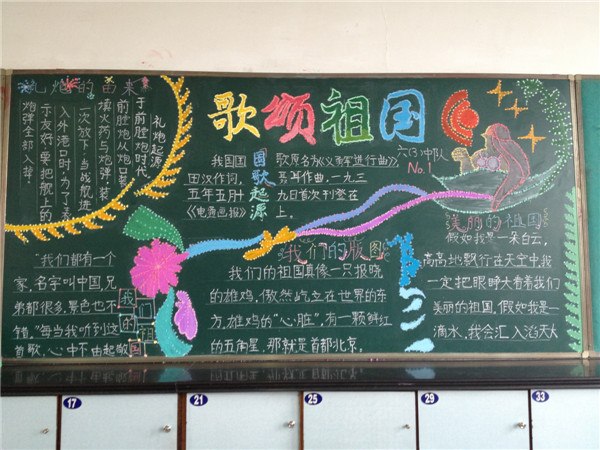 礼炮的由来
礼炮起源
于前膛炮时代
前膛炮从炮口装
填火药与炮弹,装
一次放下,当战舰进
入外港口时,为了表
示友好要把舰上的
炮弹全部入
歌颂祖国
六(3)中队
No.1
国歌起源
我国国歌原名为《义勇军进行曲》
田汉作词,聂耳作曲,一九三
五年五月九日首次刊登在
《电通画报》上。
我们的国
“我们都有一个
家,名字叫中国,兄
弟都很多,景色也不
错。”每当我听到这
首歌,心中不由起敬
我们的版图
我们的祖国真像一只报晓
的雄鸡,傲然屹立在世界的东
方,雄鸡的“心脏”,有一颗鲜红
的五角星,那就是首都北京。
美丽的祖国
假如我是一朵白云,
高高地飘行在天空中,我
一定把眼睁大看着我们
美丽的祖国,假如我是一
滴水,我会汇入滔天大
17
21
25
29
33